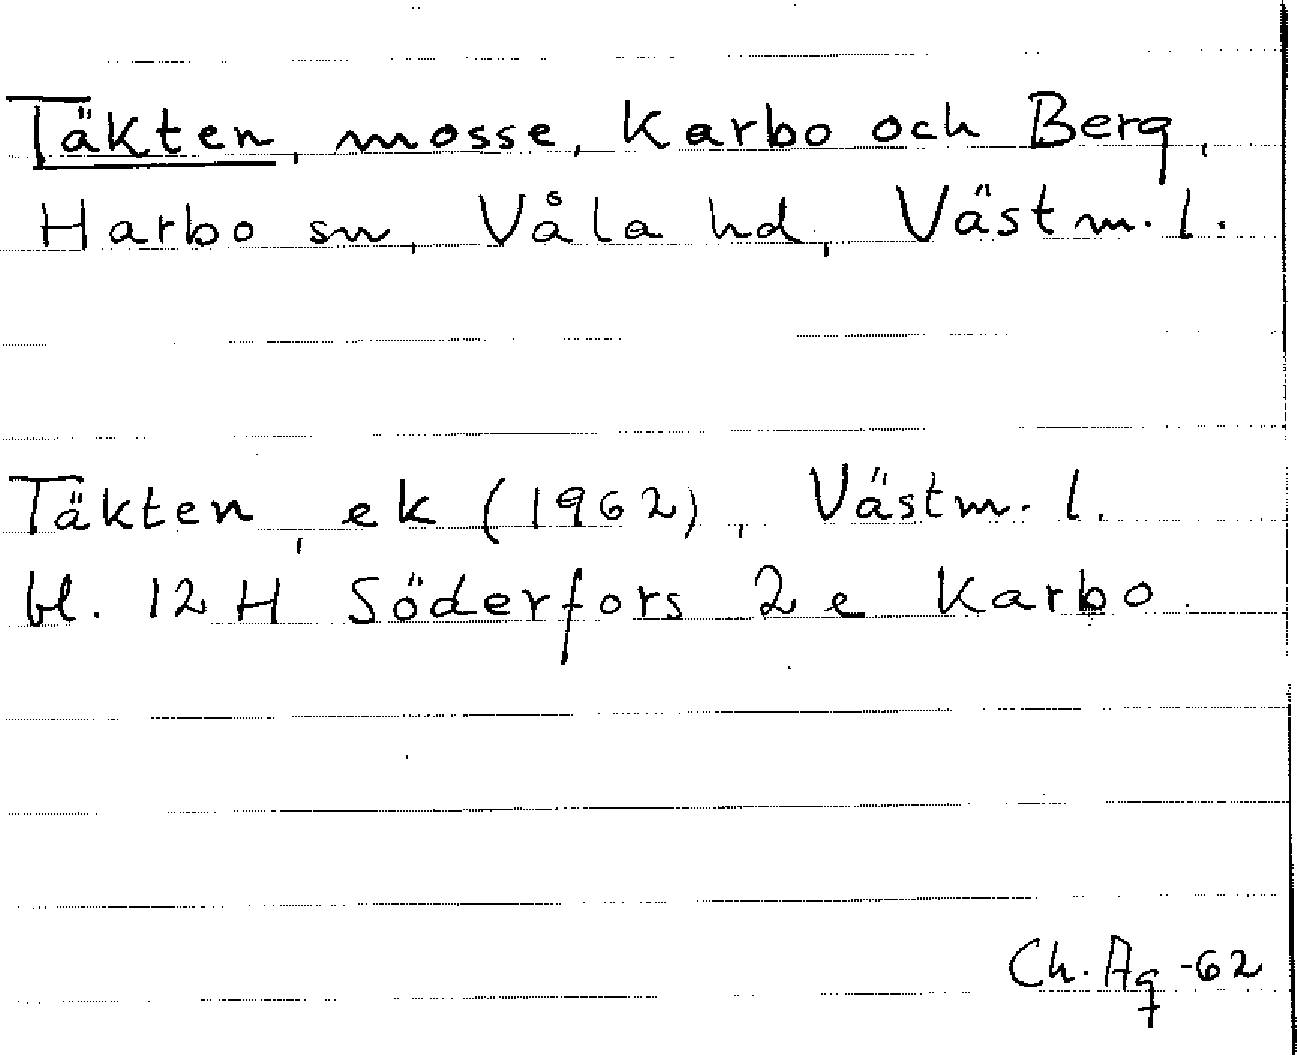 Täkten, mosse, Karbo och Berg,
Harbo sn, Våla hd, Västm. l.
Täkten, ek (1962), Västm. l.
bl. 12 H Söderfors 2 e Karbo.
Ch. Ag -62